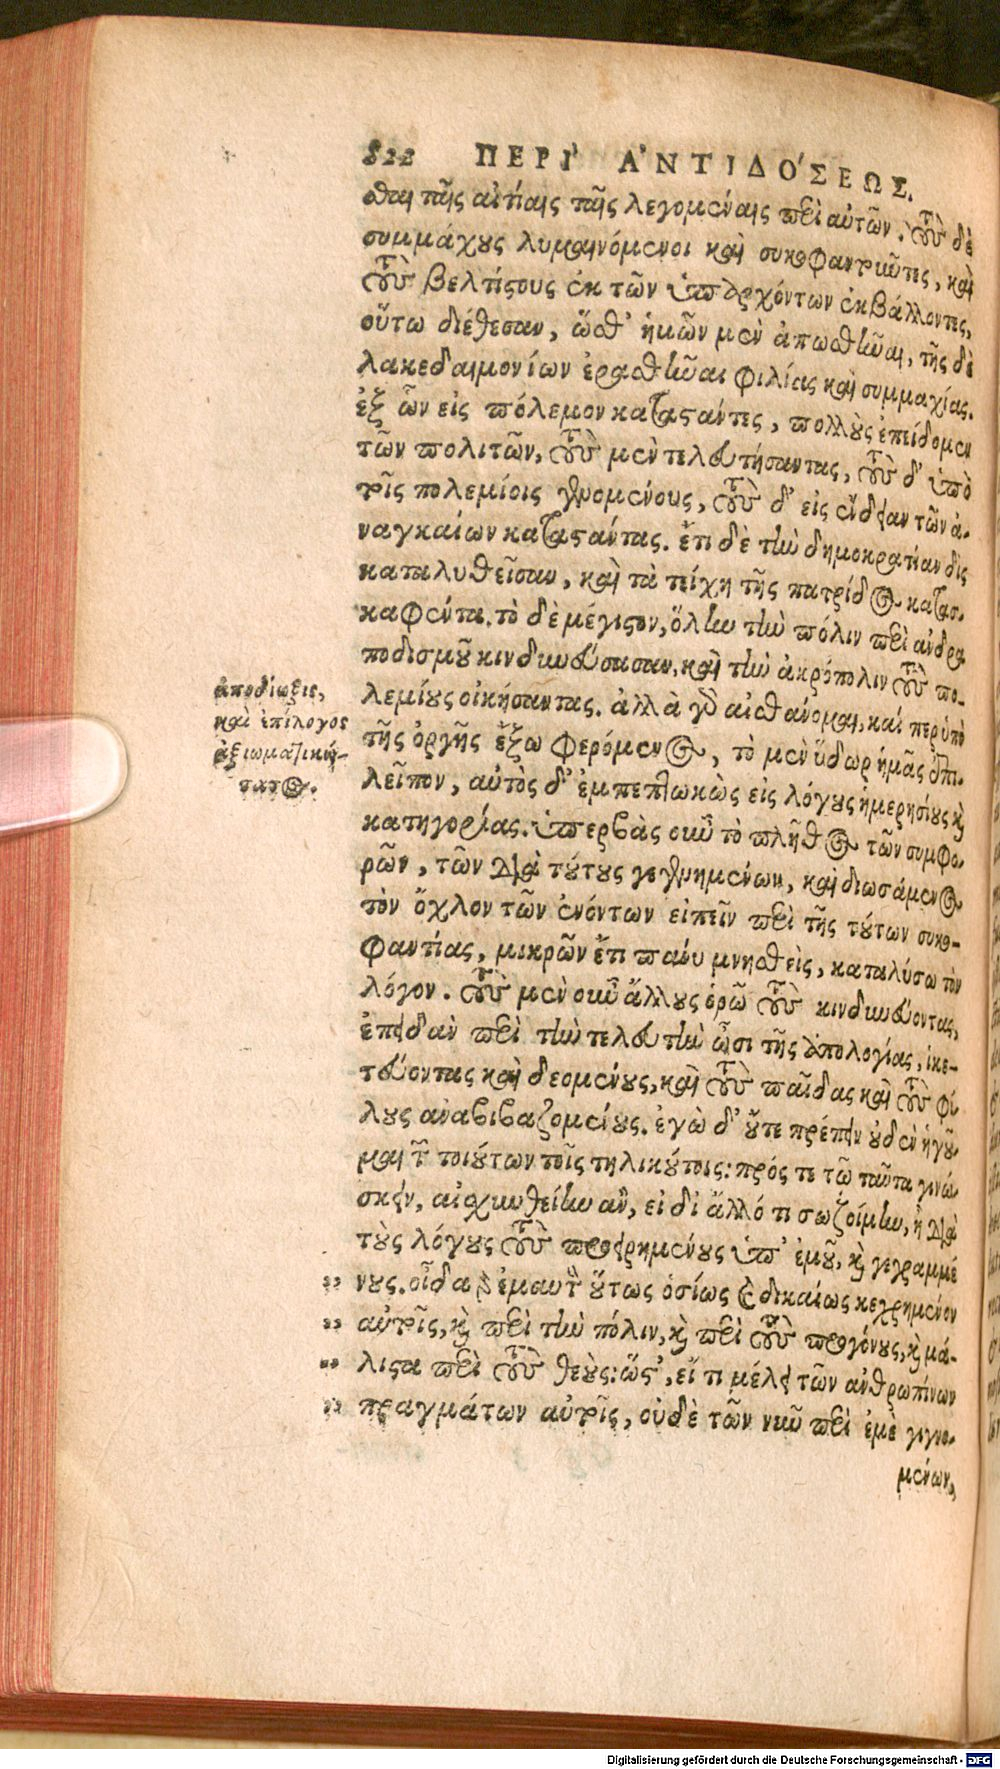 822 ΠΕΡΙ' Α'ΝΤΙΔΟ'ΣΕΩΣ.
σθαι ταῖς αἰτίαις ταῖς λεγομέναις περὶ αὐτῶν. τοὺς δὲ
συμμάχους λυμαινόμενοι καὶ συκοφαντοῦντες, καὶ
τοὺς βελτίστους ἐκ τῶν ὑπαρχόντων ἐκβάλλοντες,
οὕτω διέθεσαν, ὥσθ' ἡμῶν μὲν ἀποσθῆναι, τῆς δὲ
λακεδαιμονίων ἐρασθῆναι φιλίας καὶ συμμαχίας.
ἐξ ὧν εἰς πόλεμον καταστάντες, πολλοὺς ἐπείδομεν
τῶν πολιτῶν, τοὺς μὲν τελευτήσαντας, τοὺς δ' ὑπὸ
τοῖς πολεμίοις γενομένους, τοὺς δ' εἰς ἔνδειαν τῶν ἀ-
ναγκαίων καταστάντας. ἔτι δὲ τὴν δημοκρατίαν δὶς
καταλυθεῖσαν, καὶ τὰ τείχη τῆς πατρίδος κατασ-
καφέντα. τὸ δὲ μέγιστον, ὅλην τὴν πόλιν περὶ ἀνδρα
ποδισμοῦ κινδυνεύσασαν, καὶ τὴν ἀκρόπολιν τοὺς πο-
λεμίους οἰκήσαντας. ἀλλὰ γὰρ αἰσθάνομαι, καί περ ὑπὸ
τῆς ὀργῆς ἔξω φερόμενος, τὸ μὲν ὕδωρ ἡμᾶς ἐπι-
λεῖπον, αὐτὸς δ' ἐμπεπτωκὼς εἰς λόγους ἡμερησίους καὶ
κατηγορίας. ὑπερβὰς οὖν τὸ πλῆθος τῶν συμφο-
ρῶν, τῶν διὰ τούτους γεγενημένων, καὶ διωσάμενος
τὸν ὄχλον τῶν ἐνόντων εἰπεῖν περὶ τῆς τούτων συκο-
φαντίας, μικρῶν ἔτι πάνυ μνησθεὶς, καταλύσω τὸν
λόγον. τοὺς μὲν οὖν ἄλλους ὁρῶ τοὺς κινδυνεύοντας,
ἐπειδὰν περὶ τὴν τελευτὴν ὦσι τῆς ἀπολογίας, ἱκε-
τεύοντας καὶ δεομένους, καὶ τοὺς παῖδας καὶ τοὺς φί-
λους ἀναβιβαζομένους. ἐγὼ δ' οὔτε πρέπειν οὐδὲν ἡγοῦ-
μαι τῶν τοιούτων τοῖς τηλικούτοις: πρός τε τῷ ταῦτα γινώ-
σκειν, αἰσχυνθείην ἂν, εἰ δι' ἄλλό τι σωζοίμην, ἢ διὰ
τοὺς λόγους τοὺς προειρημένους ὑπ' ἐμοῦ, καὶ γεγραμμέ
„ νους. οἶδα γὰρ ἐμαυτὸν οὕτως ὁσίως καὶ δικαίως κεχρημένον
„ αὐτοῖς, καὶ περὶ τὴν πόλιν, καὶ περὶ τοὺς προγόνους, καὶ μά-
„ λιστα περὶ τοὺς θεούς: ὥστ', εἴ τι μέλει τῶν ἀνθρωπίνων
„ πραγμάτων αὐτοῖς, οὐδὲ τῶν νῦν περὶ ἐμὲ γιγνο-
μένων,
ἀποδίωξις,
καὶ ἐπίλογος
ἀξιωματικώ-
τατος.
Digitalisierung gefördert durch die Deutsche Forschungsgemeinschaft - DFG